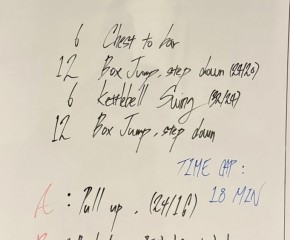 6 Chest to bar
12 Box Jump, step down (24/20)
6 Kettlebell Swing (32/24)
12 Box Jump, step down
TIME CAP:
18 MIN
A: Pull up. (24/16)